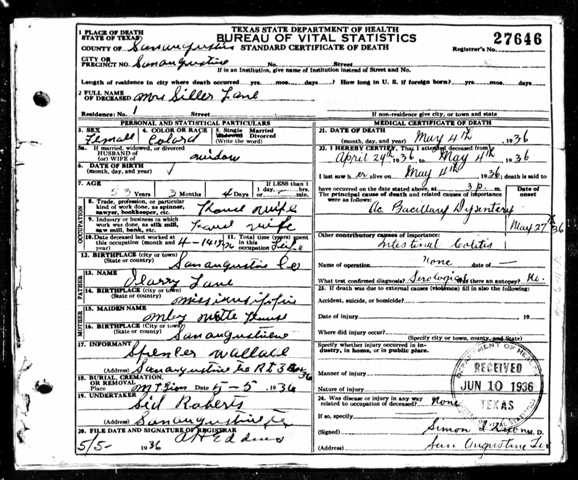 TEXAS STATE DEPARTMENT OF HEALTH
BUREAU OF VITAL STATISTICS
STANDARD CERTIFICATE OF DEATH
27646
Registrar's No.
1 PLACE OF DEATH
STATE OF TEXAS
COUNTY OF San augustine
CITY OR
PRECINCT NO. San augustine No. Street
If in an Institution, give name of Institution instead of Street and No.
Length of residence in city where death occurred yrs. mos. days. How long in U. S. if foreign born? yrs. mos. days
2 FULL NAME
OF DECEASED Mrs Siller Lane
Residence: No. Street
If non-residence give city or town, county, state
PERSONAL AND STATISTICAL PARTICULARS
3. SEX Female
4. COLOR OR RACE Colard
5. Single Married
Widowed Divorced
5a. If married, widowed, or divorced
HUSBAND OF
(or) WIFE of widow
6. DATE OF BIRTH
(month, day, year)
7. AGE 53 Years 3 Months 4 Days
If LESS than 1 day
OCCUPATION
8. Trade, profession, or particular
kind of work done, as spinner,
sawyer, bookkeeper, etc. House wife
9. Industry or business in which
work was done, as silk mill,
saw mill, bank, etc. House wife
10. Date deceased last worked at
this occupation (month and
year)
11. Total time (years)
spent in this
occupation Life
12. BIRTHPLACE (city or town)
(State or country) San augustine Co
FATHER
13. NAME Lane
14. BIRTHPLACE (city or town)
(State or country)
MOTHER
15. MAIDEN NAME
16. BIRTHPLACE (City or town)
(State or country) San augustine
17. INFORMANT Spencer Wallace
(Address) San augustine Rt 3 Box
18. BURIAL, CREMATION,
OR REMOVAL
Place Mt Zion Date 5-5 1936
19. UNDERTAKER Sid Roberts
(Address) San augustine
20. FILE DATE AND SIGNATURE OF REGISTRAR
5/5- 1936
MEDICAL CERTIFICATE OF DEATH
21. DATE OF DEATH
(month, day, year) May 4th 1936
22. I HEREBY CERTIFY, That I attended deceased from
April 29th 1936 to May 4th 1936
I last saw her alive on May 4th 1936, death is said to
have occurred on the date above, at 3 p. m.
The principal causes of death and related causes of importance
were as follows:
Date of
onset
Ac Bacillary Dysentery
May 27th 36
Other contributory causes of importance:
Intestinal Colitis
Name of operation none date of
What test confirmed diagnosis? Was there an autopsy? No.
23. If death was due to external causes (violence) fill in also the following:
Accident, suicide, or homicide?
Date of injury 19
Where did injury occur?
(Specify city or town, county, and state)
Specify whether injury occurred in industry, in home, or in public place.
Manner of injury
Nature of injury
24. Was disease or injury in any way
related to occupation of deceased? None
If so, specify
(Signed) Simon M. D.
(Address) San Augustine Tex
DEPARTMENT OF HEALTH
RECEIVED
JUN 10 1936
TEXAS